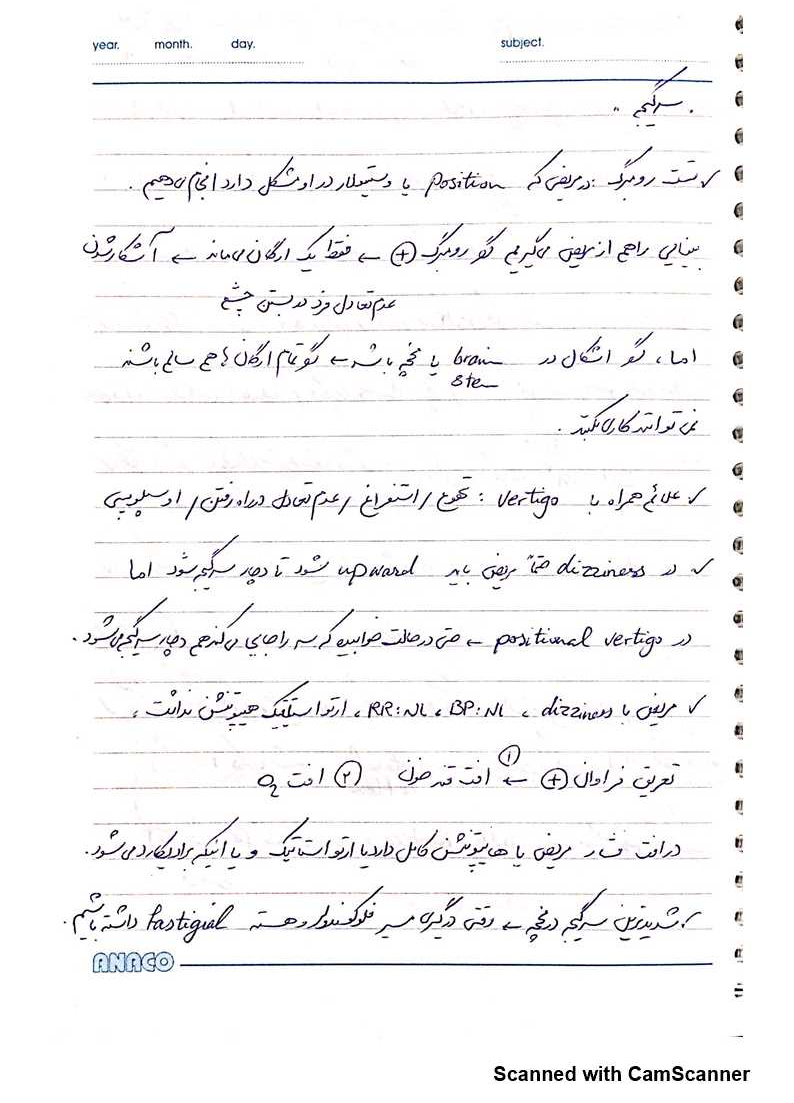 year. month. day. subject.
. سرگیجه "
✓ تست رومبرگ : در مریضی که position یا وستیبولار در او مشکل دارد انجام می‌دهیم .
بینایی را هم از مریض می‌گیریم گو رومبرگ (+) ← فقط یک ارگان می‌ماند ← آشکار شدن
عدم تعادل فرد در بستن چشم
اما، گو اشکال در brain stem یا مخچه باشد ← گو تمام ارگان‌ها هم سالم باشند
نمی‌توانند کاری بکنند .
✓ علائم همراه با vertigo : تهوع / استفراغ / عدم تعادل در راه رفتن / اوسیلوپسی
✓ در dizziness حتماً مریض باید upward شود تا دچار سرگیجه شود اما
در positional vertigo ← حتی در حالت خوابیده که سر را جابجایی می‌کند هم دچار سرگیجه می‌شود .
✓ مریض با dizziness ، BP:NL ، RR:NL ، ارتواستاتیک هیپوتنشن نداشت ،
تعریق فراوان (+) ← ① افت قند خون ② افت O₂
در افت فشار مریض یا هایپوتنشن کامل دارد یا ارتواستاتیک و یا اینکه برادیکارد می‌شود .
✓ شدیدترین سرگیجه در مخچه ← وقتی درگیری مسیر فلوکوندولر و هسته fastigial داشته باشیم .
ANACO
Scanned with CamScanner